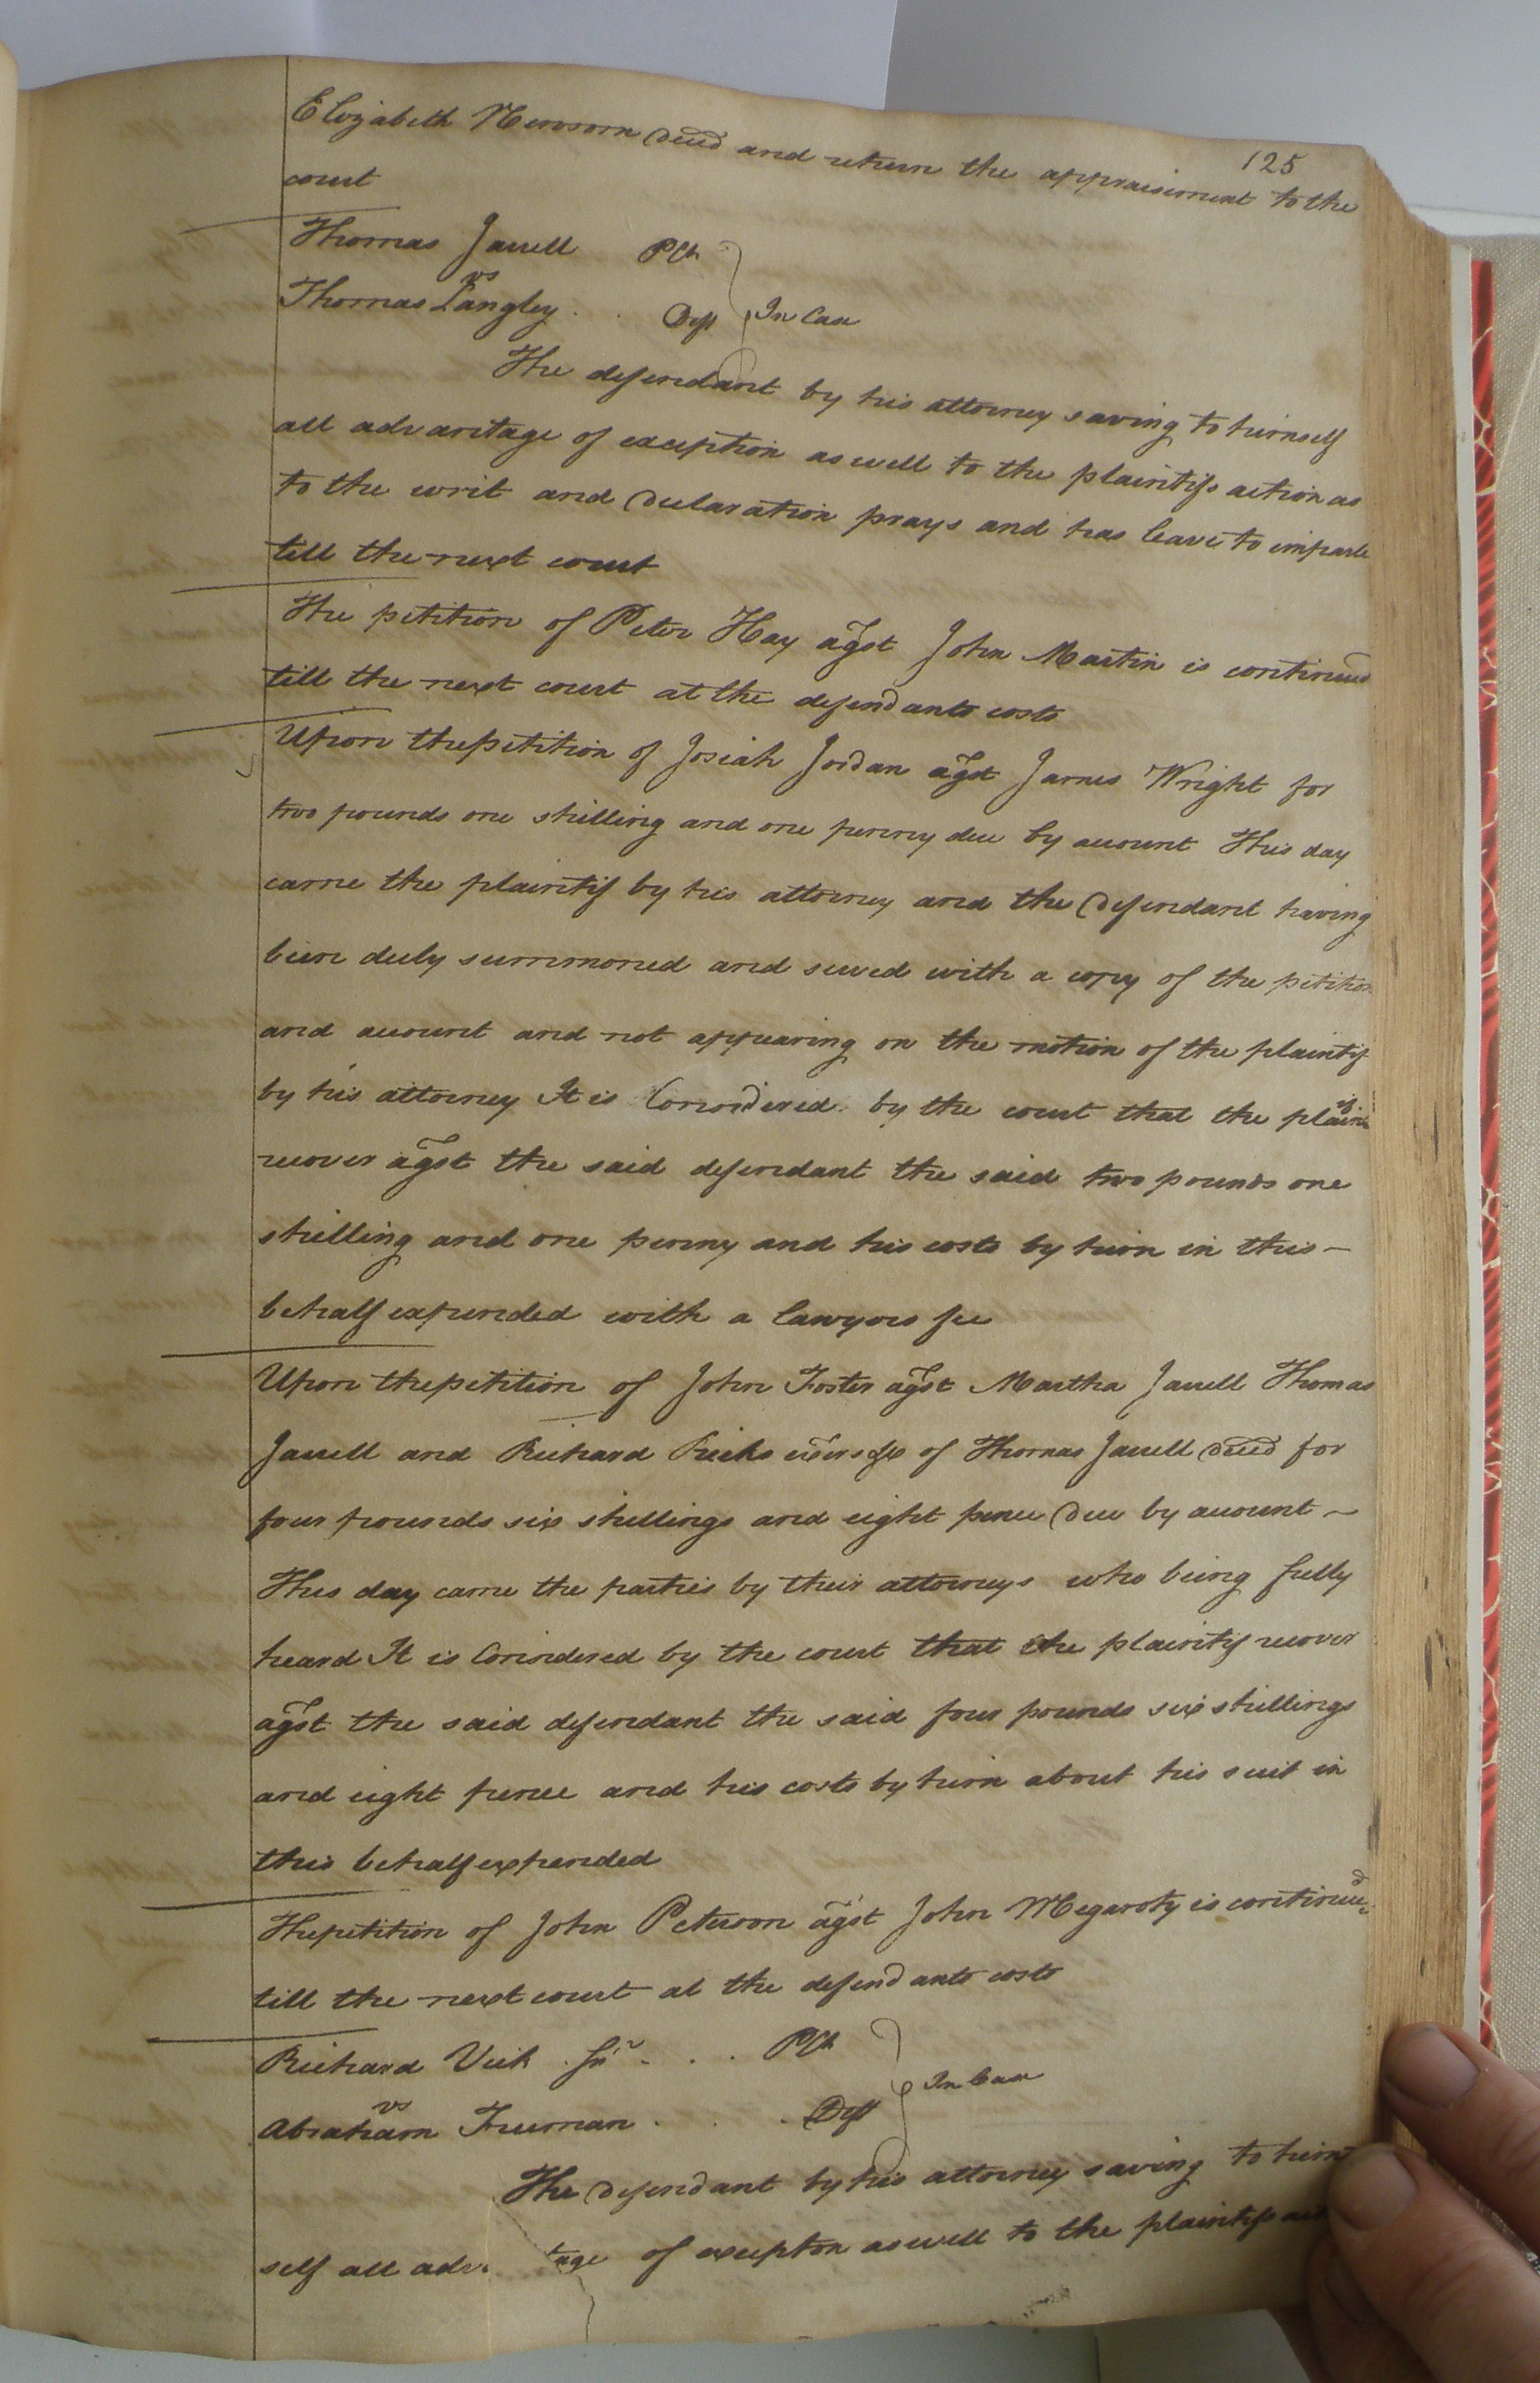 125
Elizabeth Newsom decd and return the appraisement to the
court
Thomas Jarrell Plt
vs
Thomas Langley . . Deft In Case
The defendant by his attorney saving to himself
all advantage of exception as well to the plaintifs action as
to the writ and declaration prays and has leave to imparle
till the next court
The petition of Peter Hay agst John Martin is continued
till the next court at the defendants costs
Upon the petition of Josiah Jordan agst James Wright for
two pounds one shilling and one penny due by account This day
came the plaintif by his attorney and the defendant having
been duly summoned and served with a copy of the petition
and account and not appearing on the motion of the plaintif
by his attorney It is Considered by the court that the plaintif
recover agst the said defendant the said two pounds one
shilling and one penny and his costs by him in this –
behalf expended with a lawyers fee
Upon the petition of John Foster agst Martha Jarrell Thomas
Jarrell and Richard Ricks exors &c of Thomas Jarrell decd for
four pounds six shillings and eight pence due by account ~
This day came the parties by their attorneys who being fully
heard It is Considered by the court that the plaintif recover
agst the said defendant the said four pounds six shillings
and eight pence and his costs by him about his suit in
this behalf expended
The petition of John Peterson agst John Megarrity is continued
till the next court at the defendants costs
Richard Vick Jnr . . . Plt
vs
Abraham Freeman . . . Deft In Case
The defendant by his attorney saving to him
self all adv tage of exception as well to the plaintifs